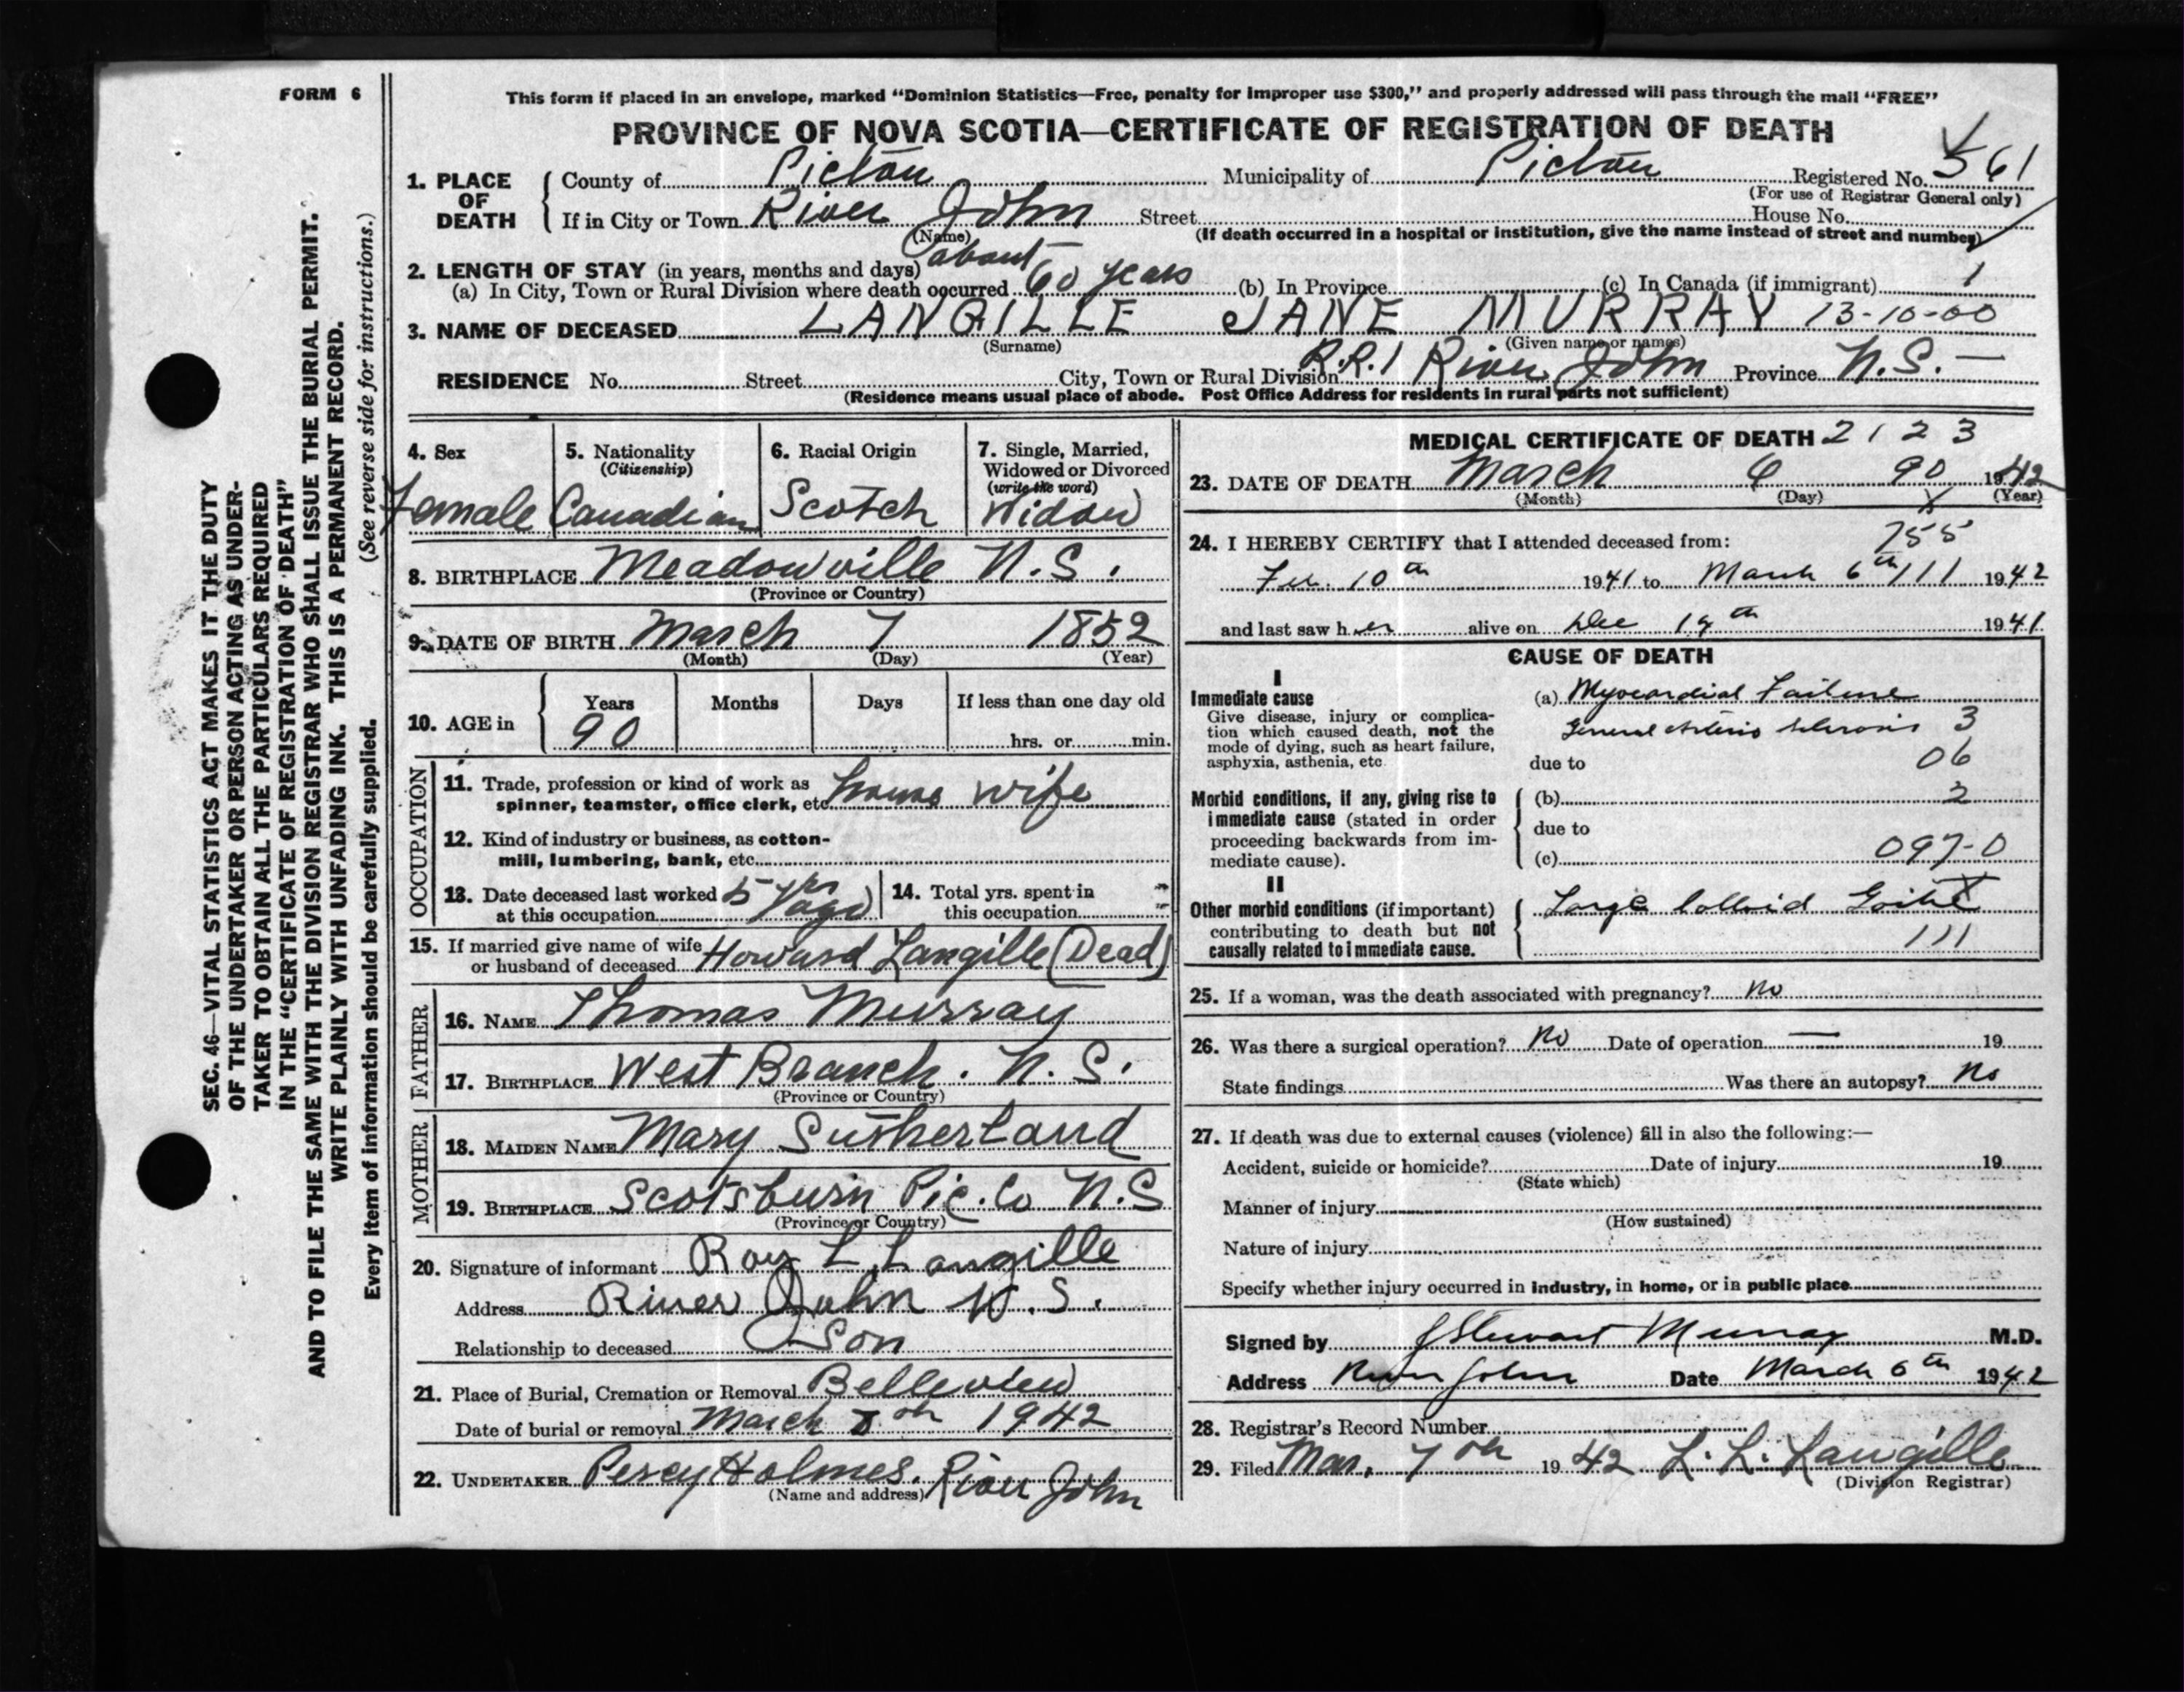 FORM 6
This form if placed in an envelope, marked "Dominion Statistics—Free, penalty for improper use $300," and properly addressed will pass through the mail "FREE"
PROVINCE OF NOVA SCOTIA—CERTIFICATE OF REGISTRATION OF DEATH
1. PLACE OF DEATH County of Pictou Municipality of Pictou Registered No. 561
(For use of Registrar General only)
If in City or Town River John Street House No.
(Name) (If death occurred in a hospital or institution, give the name instead of street and number)
2. LENGTH OF STAY (in years, months and days) about
(a) In City, Town or Rural Division where death occurred 60 years (b) In Province (c) In Canada (if immigrant) 1
3. NAME OF DECEASED LANGILLE JANE MURRAY 13-10-00
(Surname) (Given name or names)
RESIDENCE No. Street City, Town or Rural Division R.R.1 River John Province N.S. —
(Residence means usual place of abode. Post Office Address for residents in rural parts not sufficient)
4. Sex Female
5. Nationality (Citizenship) Canadian
6. Racial Origin Scotch
7. Single, Married, Widowed or Divorced (write the word) Widow
8. BIRTHPLACE Meadowville N.S.
(Province or Country)
9. DATE OF BIRTH March 7 1852
(Month) (Day) (Year)
10. AGE in Years Months Days If less than one day old
90 hrs. or min.
OCCUPATION
11. Trade, profession or kind of work as spinner, teamster, office clerk, etc. house wife
12. Kind of industry or business, as cotton-mill, lumbering, bank, etc.
13. Date deceased last worked at this occupation 5 yrs ago
14. Total yrs. spent in this occupation "
15. If married give name of wife or husband of deceased Howard Langille (Dead)
FATHER
16. NAME Thomas Murray
17. BIRTHPLACE West Branch. N.S.
(Province or Country)
MOTHER
18. MAIDEN NAME Mary Sutherland
19. BIRTHPLACE Scotsburn Pic. Co N.S
(Province or Country)
20. Signature of informant Roy L Langille
Address River John N.S.
Relationship to deceased Son
21. Place of Burial, Cremation or Removal Belleview
Date of burial or removal March 8th 1942
22. UNDERTAKER Percy Holmes. River John
(Name and address)
MEDICAL CERTIFICATE OF DEATH 2123
23. DATE OF DEATH March 6 90 1942
(Month) (Day) (Year)
755
24. I HEREBY CERTIFY that I attended deceased from:
Feb. 10th 1941 to March 6th 111 1942
and last saw her alive on Dec 19th 1941
CAUSE OF DEATH
I
Immediate cause (a) Myocardial Failure
Give disease, injury or complication which caused death, not the mode of dying, such as heart failure, asphyxia, asthenia, etc
General Arterio sclerosis 3
due to 06
Morbid conditions, if any, giving rise to immediate cause (stated in order proceeding backwards from immediate cause).
(b) 2
due to
(c) 097-0
II
Other morbid conditions (if important) contributing to death but not causally related to immediate cause.
Large Colloid Goitre
111
25. If a woman, was the death associated with pregnancy? No
26. Was there a surgical operation? No Date of operation — 19
State findings Was there an autopsy? No
27. If death was due to external causes (violence) fill in also the following:—
Accident, suicide or homicide? Date of injury 19
(State which)
Manner of injury
(How sustained)
Nature of injury
Specify whether injury occurred in industry, in home, or in public place
Signed by J Stewart Murray M.D.
Address River John Date March 6th 1942
28. Registrar's Record Number
29. Filed Mar. 7th 1942 L. L. Langille
(Division Registrar)
SEC. 46—VITAL STATISTICS ACT MAKES IT THE DUTY
OF THE UNDERTAKER OR PERSON ACTING AS UNDER-
TAKER TO OBTAIN ALL THE PARTICULARS REQUIRED
IN THE "CERTIFICATE OF REGISTRATION OF DEATH"
AND TO FILE THE SAME WITH THE DIVISION REGISTRAR WHO SHALL ISSUE THE BURIAL PERMIT.
WRITE PLAINLY WITH UNFADING INK. THIS IS A PERMANENT RECORD.
Every item of information should be carefully supplied. (See reverse side for instructions.)